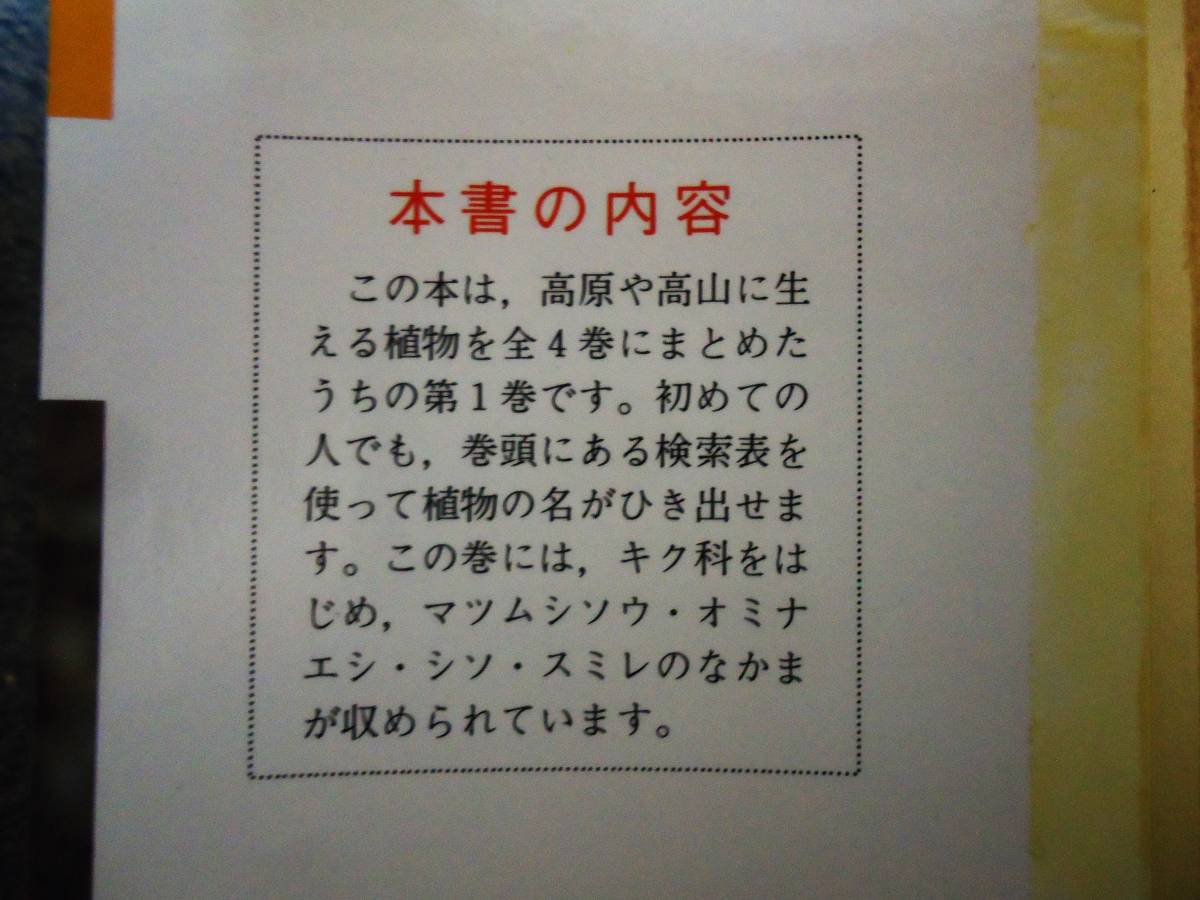 本書の内容
この本は，高原や高山に生
える植物を全4巻にまとめた
うちの第1巻です。初めての
人でも，巻頭にある検索表を
使って植物の名がひき出せま
す。この巻には，キク科をは
じめ，マツムシソウ・オミナ
エシ・シソ・スミレのなかま
が収められています。